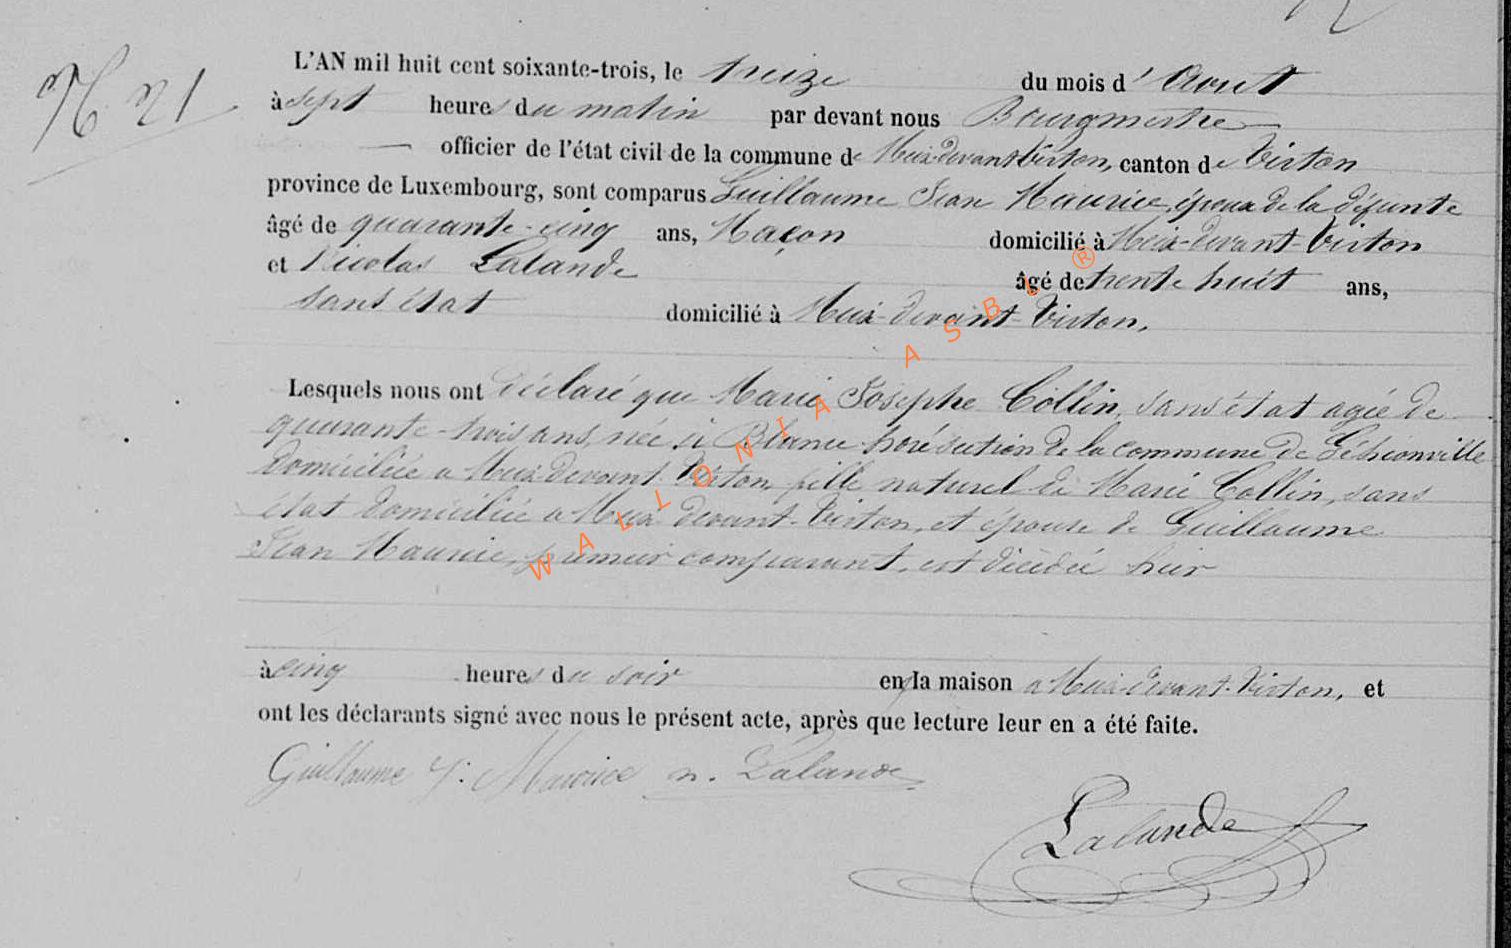 N. 21
L'AN mil huit cent soixante-trois, le treize du mois d'Aout
à sept heures du matin par devant nous Bourgmestre
officier de l'état civil de la commune de Meix-devant-Virton, canton de Virton
province de Luxembourg, sont comparus Guillaume Jean Maurice, époux de la défunte
âgé de quarante-cinq ans, Maçon domicilié à Meix-devant-Virton
et Nicolas Lalande âgé de trente huit ans,
sans état domicilié à Meix-devant-Virton.
Lesquels nous ont déclaré que Marie Josephe Collin, sans état agée de
quarante-trois ans, née à Blanche-horé section de la commune de Géhionville
domiciliée a Meix-devant-Virton, fille naturel de Marie Collin, sans
état domiciliée a Meix-devant-Virton, et épouse de Guillaume
Jean Maurice, premier comparant, est décédée hier
à cinq heures du soir en la maison a Meix-devant-Virton, et
ont les déclarants signé avec nous le présent acte, après que lecture leur en a été faite.
Guillaume J. Maurice n. Lalande
Lalande
WALLONIA ASBL ®